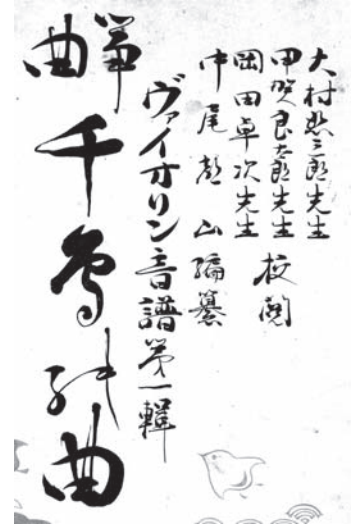 大村恕三郎先生
甲賀良太郎先生
岡田卓次先生
校閲
中尾都山編纂
ヴァイオリン音譜第一輯
箏曲
千鳥の曲